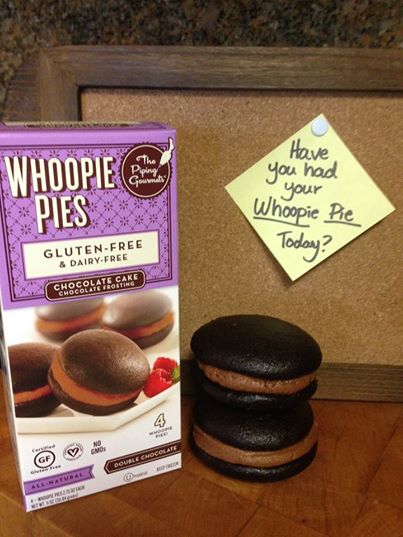 WHOOPIE
PIES
The
Piping
Gourmets
GLUTEN-FREE
& DAIRY-FREE
CHOCOLATE CAKE
CHOCOLATE FROSTING
4
WHOOPIE
PIES!
Certified
GF
Gluten-Free
NO
GMOs
DOUBLE CHOCOLATE
ALL-NATURAL
KEEP FROZEN
Have
you had
your
Whoopie Pie
Today?